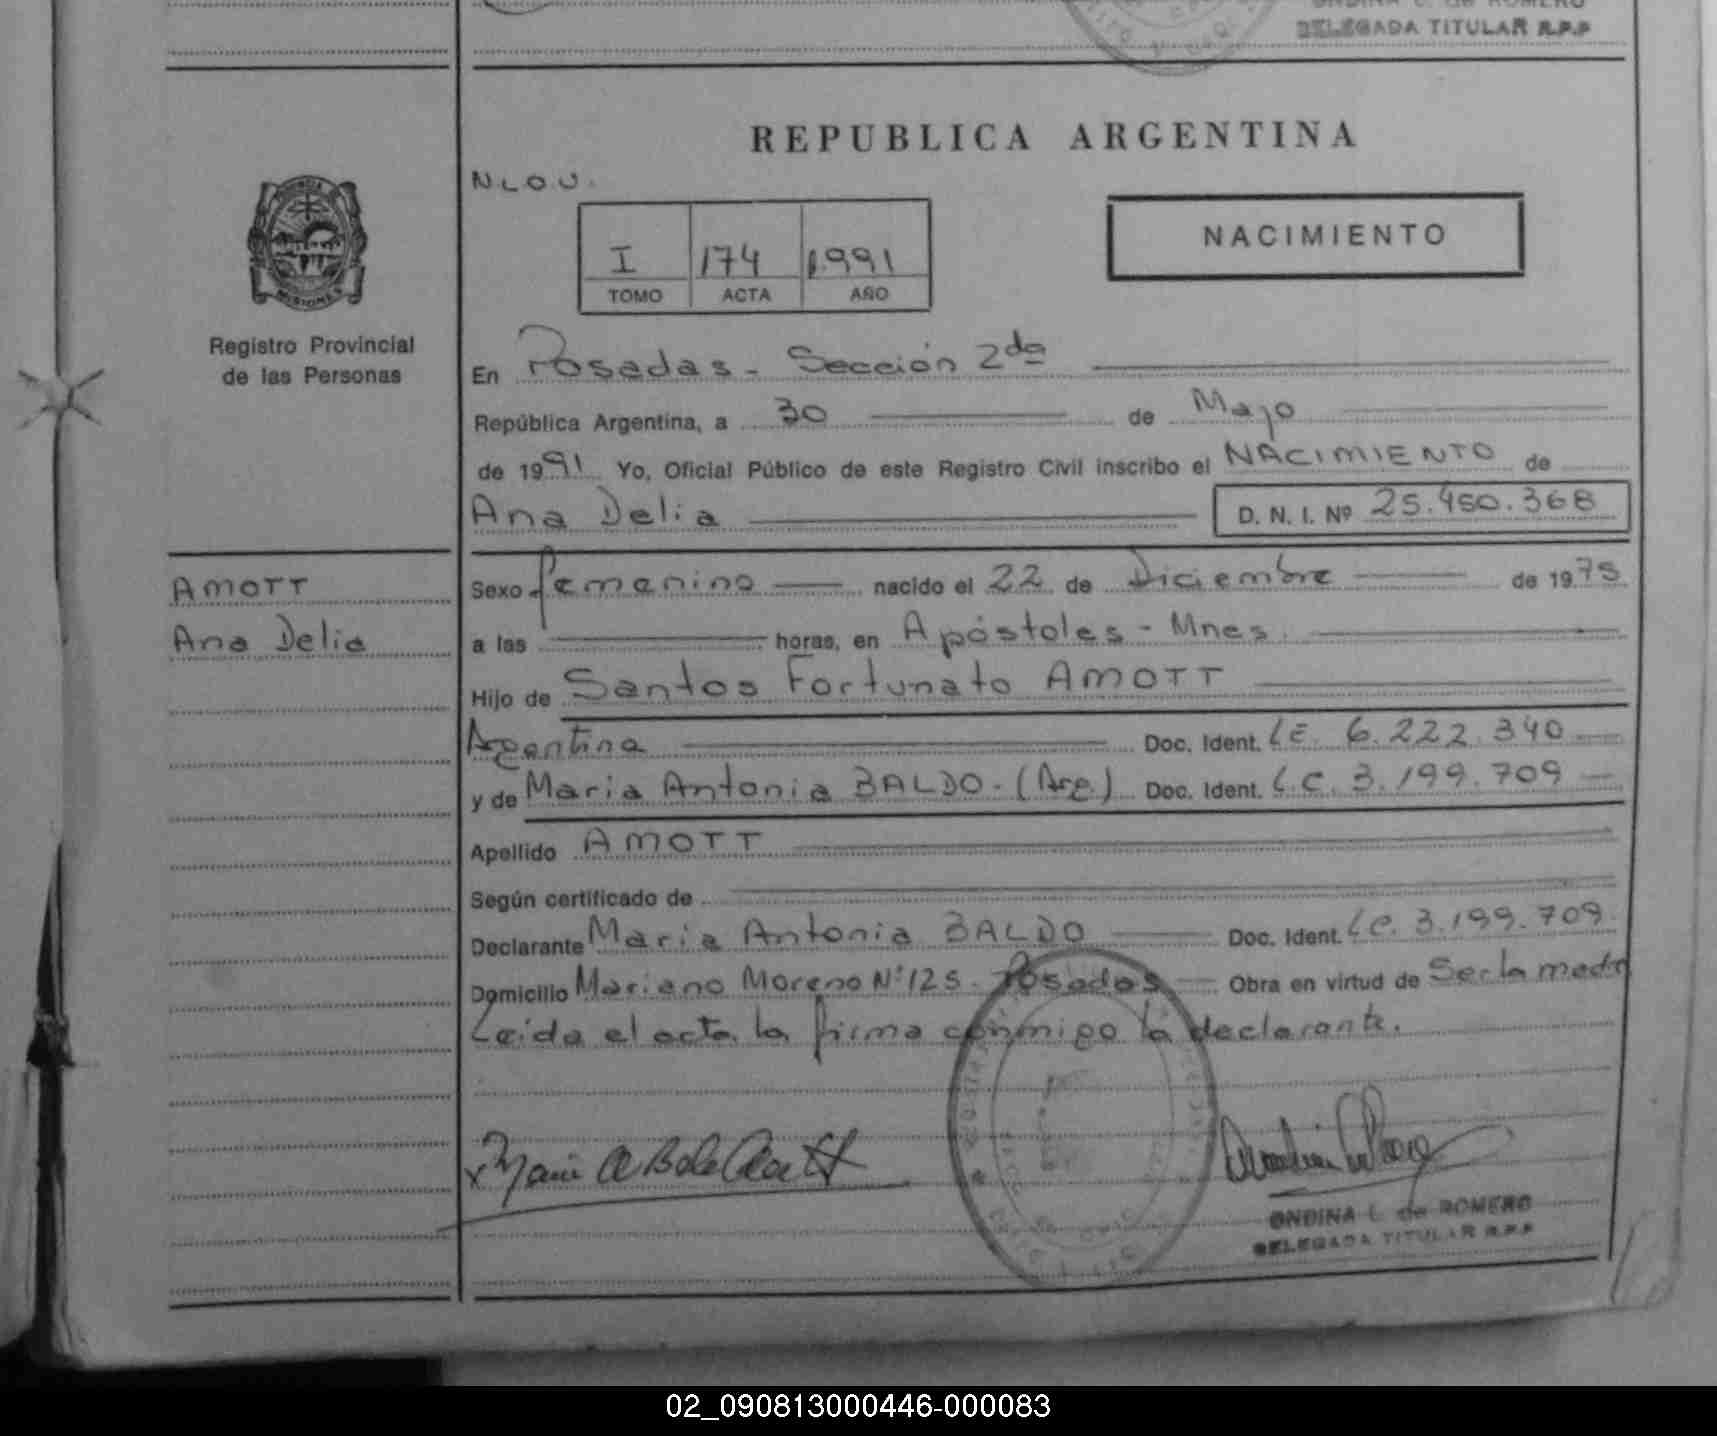 ONDINA L. de ROMERO
DELEGADA TITULAR R.P.P
REPUBLICA ARGENTINA
N.L.O.U.
NACIMIENTO
I 174 1991
TOMO ACTA AÑO
PROVINCIA DE
MISIONES
Registro Provincial
de las Personas
En Posadas - Sección 2da
República Argentina, a 30 de Mayo
de 1991 Yo, Oficial Público de este Registro Civil inscribo el NACIMIENTO de
Ana Delia D. N. I. Nº 25.450.368
AMOTT
Ana Delia
Sexo femenino nacido el 22 de Diciembre de 1975
a las horas, en Apóstoles - Mnes.
Hijo de Santos Fortunato AMOTT
Argentina Doc. Ident. LE. 6.222.340
y de Maria Antonia BALDO - (Arg.) Doc. Ident. L.C. 3.199.709
Apellido AMOTT
Según certificado de
Declarante Maria Antonia BALDO Doc. Ident. LC. 3.199.709.
Domicilio Mariano Moreno Nº 125. Posadas Obra en virtud de Ser la madre
Leida el acta la firma conmigo la declarante.
ONDINA L. de ROMERO
DELEGADA TITULAR R.P.P
02_090813000446-000083